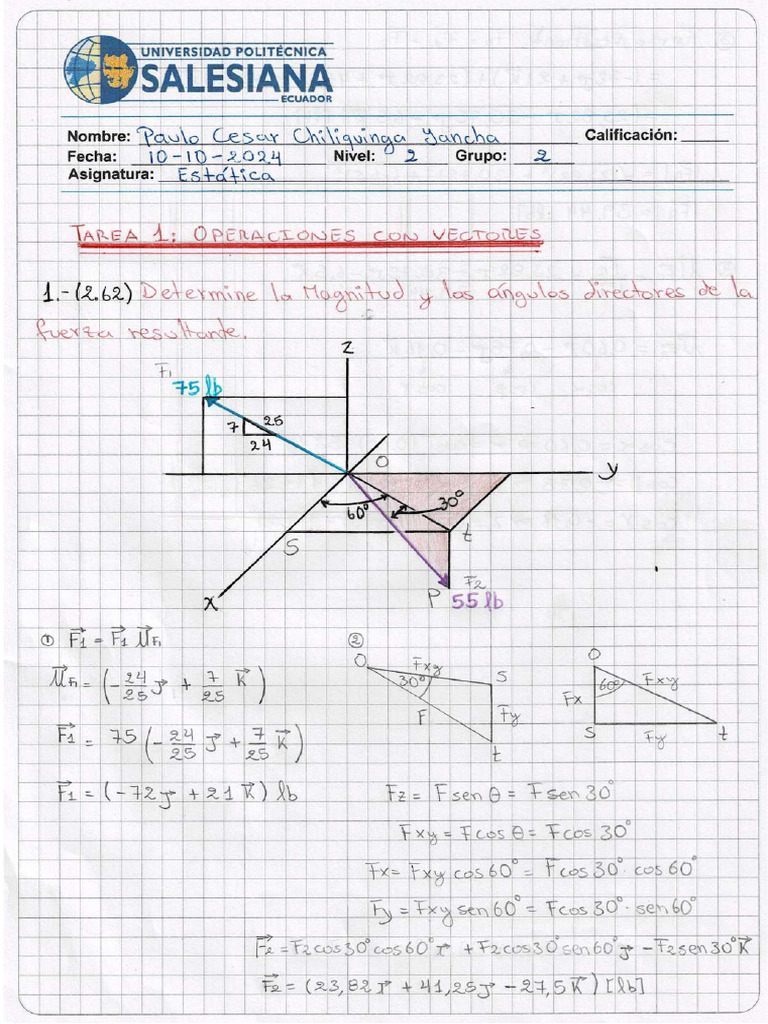 UNIVERSIDAD POLITÉCNICA
SALESIANA
ECUADOR
Nombre: Paulo Cesar Chiliquinga Yancha Calificación:
Fecha: 10-10-2024 Nivel: 2 Grupo: 2
Asignatura: Estática
TAREA 1: OPERACIONES CON VECTORES
1.-(2.62) Determine la Magnitud y los ángulos directores de la
fuerza resultante.
z
F1
75 lb
7 25
24
O
y
60° 30°
S
t
x
P F2
55 lb
① F⃗1 = F⃗1 μ⃗F1
μ⃗F1 = (-24/25 j⃗ + 7/25 k⃗)
F⃗1 = 75 (-24/25 j⃗ + 7/25 k⃗)
F⃗1 = (-72j⃗ + 21k⃗) lb
②
O Fxy S
30°
F Fy
t
O
Fx 60° Fxy
S Fy t
Fz = F sen θ = F sen 30°
Fxy = F cos θ = F cos 30°
Fx = Fxy cos 60° = F cos 30° · cos 60°
Fy = Fxy sen 60° = F cos 30° · sen 60°
F⃗2 = F2 cos 30° cos 60° i⃗ + F2 cos 30° sen 60° j⃗ - F2 sen 30° k⃗
F⃗2 = (23,82 i⃗ + 41,25 j⃗ - 27,5 k⃗) [lb]